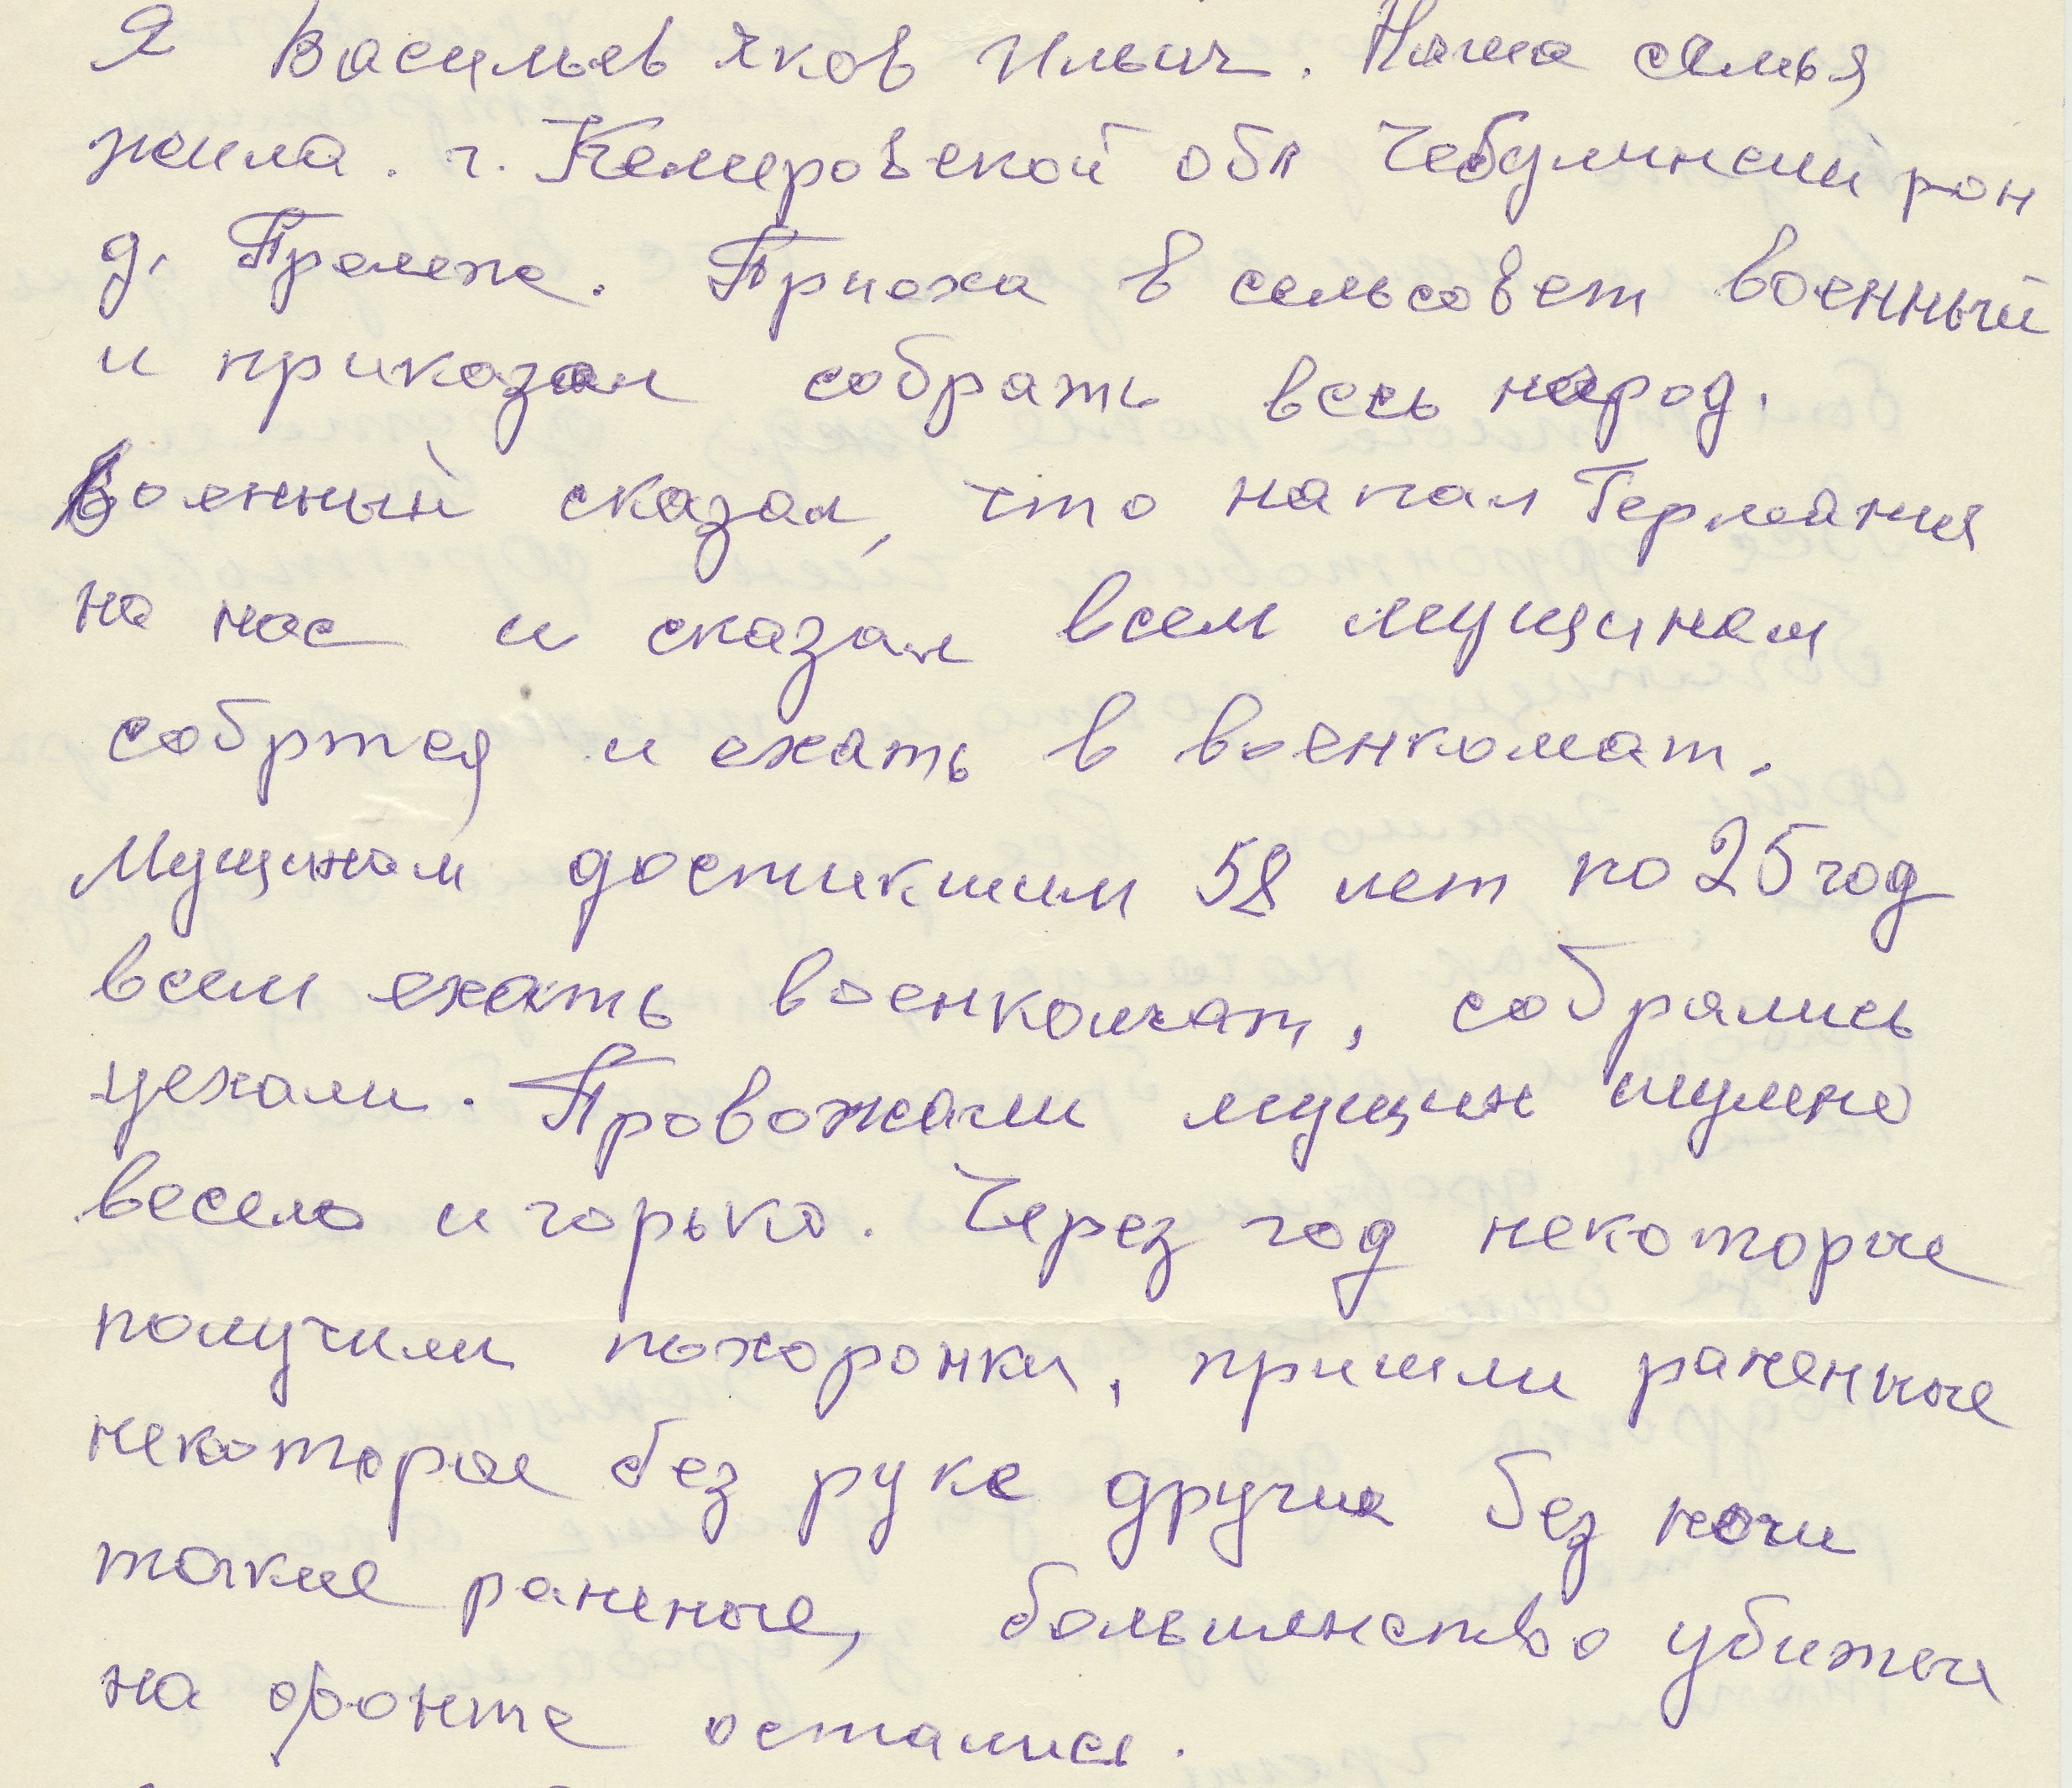 Я Васильев Яков Ильич. Наша семья
жила. г. Кемеровской обл Чебулинский рон
д. Пролека. Приеха в сельсовет военный
и приказал собрать весь народ.
Военный сказал, что напал Германия
на нас и сказал всем мущинам
собртся и ехать в военкомат.
Мущинам достикшим 58 лет по 25 год
всем ехать военкомат, собрались
уехали. Провожали мущин шумно
весело и горько. Через год некоторые
получили похоронки, пришли раненые
некоторые без руке другие без ноги
такие раненые, большенство убитых
на фронте остались.